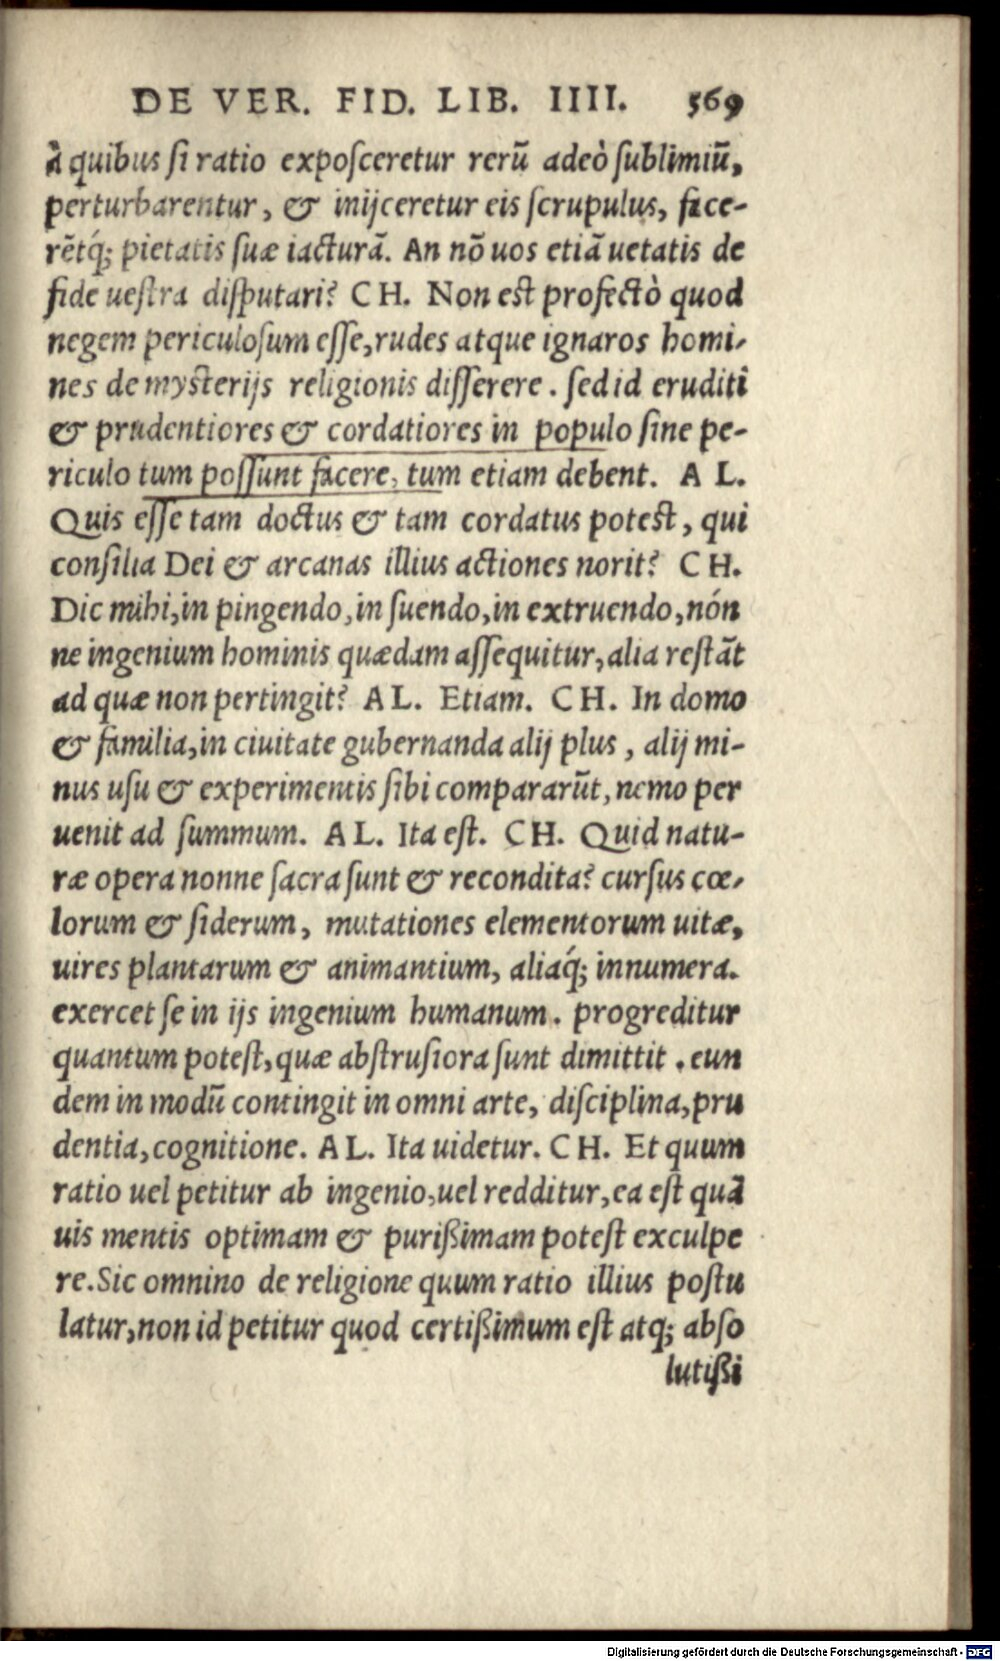 DE VER. FID. LIB. IIII. 569
à quibus ſi ratio expoſceretur rerũ adeò ſublimiũ,
perturbarentur, & inijceretur eis ſcrupulus, face-
rẽtq́; pietatis ſuæ iacturã. An nõ uos etiã uetatis de
fide ueſtra diſputari? CH. Non eſt profectò quod
negem periculoſum eſſe, rudes atque ignaros homi-
nes de myſterijs religionis diſſerere. ſed id eruditi
& prudentiores & cordatiores in populo ſine pe-
riculo tum poſſunt facere, tum etiam debent. AL.
Quis eſſe tam doctus & tam cordatus poteſt, qui
conſilia Dei & arcanas illius actiones norit? CH.
Dic mihi, in pingendo, in ſuendo, in extruendo, nón
ne ingenium hominis quædam aſſequitur, alia reſtãt
ad quæ non pertingit? AL. Etiam. CH. In domo
& familia, in ciuitate gubernanda alij plus, alij mi-
nus uſu & experimentis ſibi compararũt, nemo per
uenit ad ſummum. AL. Ita eſt. CH. Quid natu-
ræ opera nonne ſacra ſunt & recondita? curſus cœ-
lorum & ſiderum, mutationes elementorum uitæ,
uires plantarum & animantium, aliaq́; innumera.
exercet ſe in ijs ingenium humanum. progreditur
quantum poteſt, quæ abſtruſiora ſunt dimittit. eun
dem in modũ contingit in omni arte, diſciplina, pru
dentia, cognitione. AL. Ita uidetur. CH. Et quum
ratio uel petitur ab ingenio, uel redditur, ea eſt quã
uis mentis optimam & purißimam poteſt exculpe
re. Sic omnino de religione quum ratio illius poſtu
latur, non id petitur quod certißimum eſt atq; abſo
lutißi
Digitalisierung gefördert durch die Deutsche Forschungsgemeinschaft - DFG